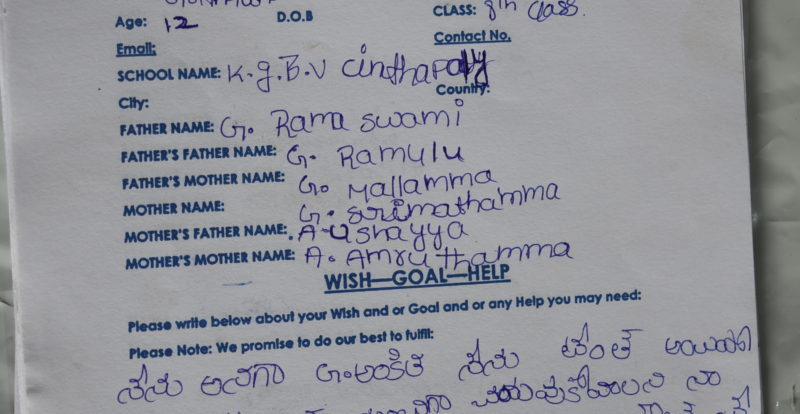 Age: 12 D.O.B CLASS: 8th class.
Email: Contact No.
SCHOOL NAME: K.g.B.V cinthapally
City: Country:
FATHER NAME: G. Rama swami
FATHER'S FATHER NAME: G. Ramulu
FATHER'S MOTHER NAME: G. Mallamma
MOTHER NAME: G. srimathamma
MOTHER'S FATHER NAME: A. Ushayya
MOTHER'S MOTHER NAME: A. Amruthamma
WISH—GOAL—HELP
Please write below about your Wish and or Goal and or any Help you may need:
Please Note: We promise to do our best to fulfil:
నేను అనగా G. నేను
నా